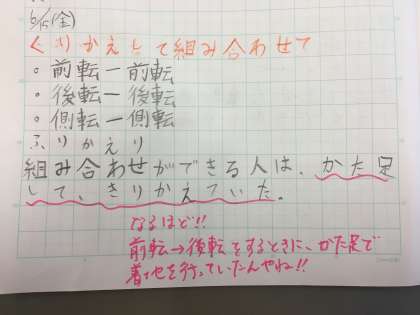 6/15(金)
くりかえして組み合わせて
○前転ー前転
○後転ー後転
○側転ー側転
ふりかえり
組み合わせができる人は、かた足
して、きりかえていた。
なるほど!!
前転→後転をするときに、かた足で
着地を行っていたんやね!!